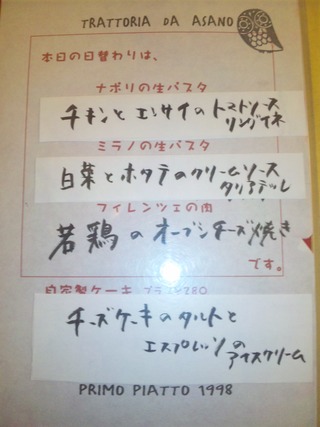 TRATTORIA DA ASANO
本日の日替わりは、
ナポリの生パスタ
チキンとエンサイのトマトソース
リングイネ
ミラノの生パスタ
白菜とホタテのクリームソース
タリアテッレ
フィレンツェの肉
若鶏のオーブンチーズ焼き
です。
自家製ケーキ プラス¥280
チーズケーキのタルトと
エスプレッソの
アイスクリーム
PRIMO PIATTO 1998